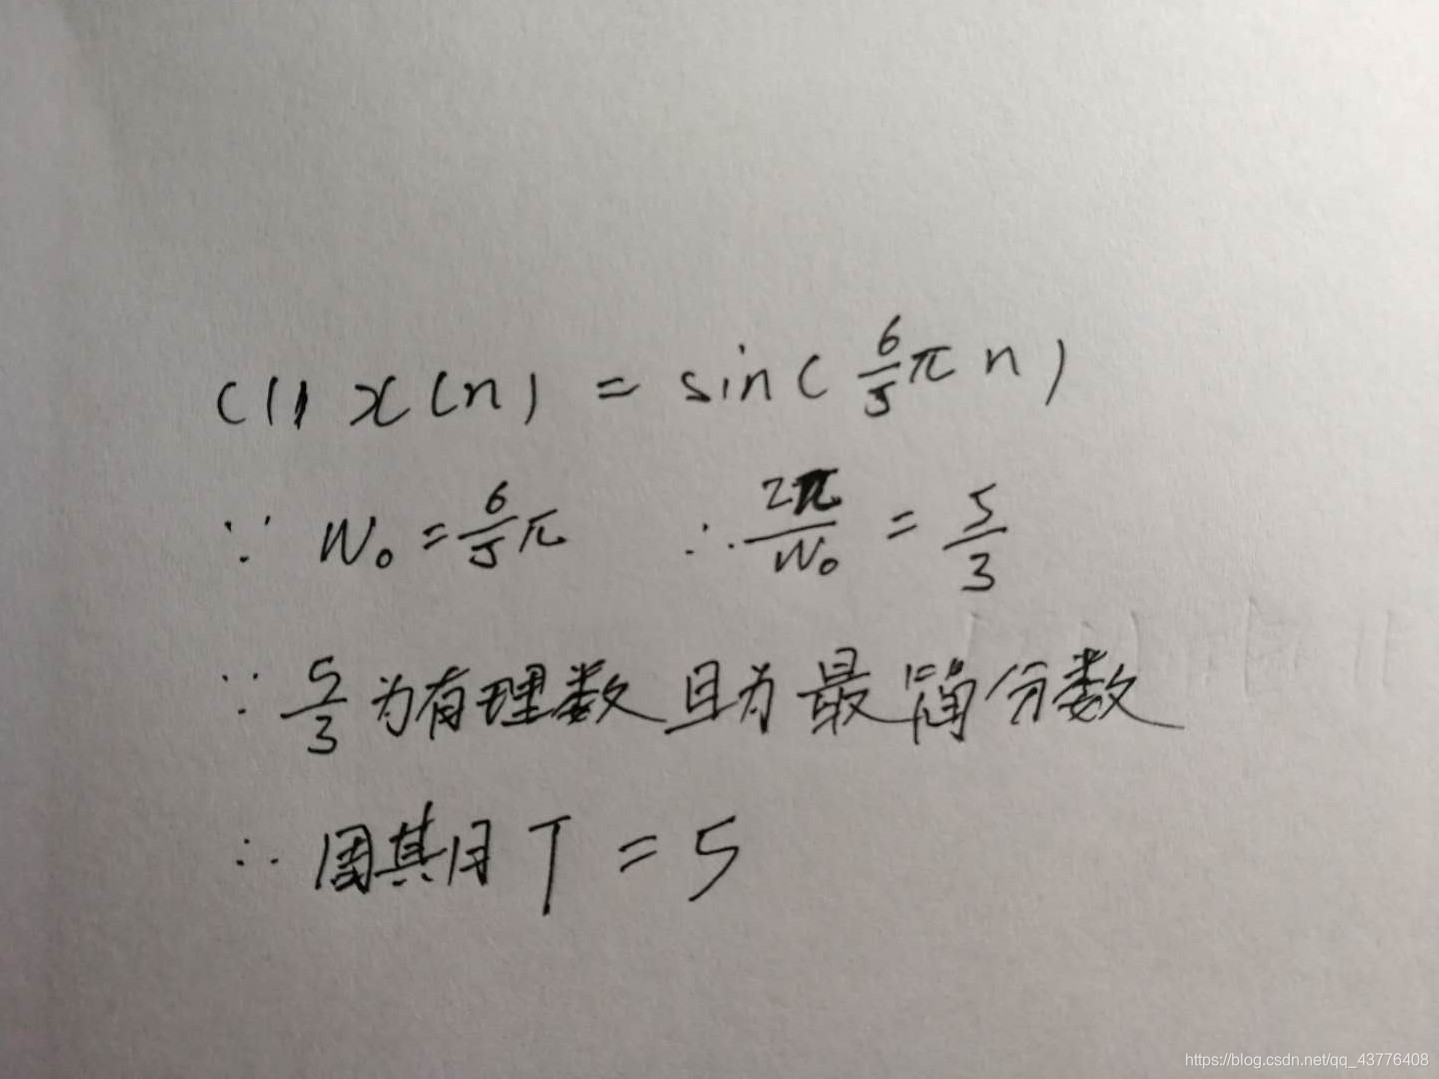 (1) x(n) = sin(6/5 π n)
∵ W₀ = 6/5 π ∴ 2π/W₀ = 5/3
∵ 5/3 为有理数且为最简分数
∴ 周期 T = 5
https://blog.csdn.net/qq_43776408